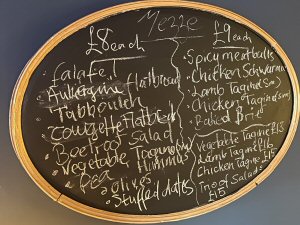 Mezze
£8 each
• Falafel
• Aubergine Flatbread
• Tabbouleh
• Courgette Flatbread
• Beetroot Salad
• Vegetable
• Pea Hummus
• Olives
• Stuffed dates
£9 each
• Spicy meatballs
• Chicken
• Lamb Tagine (Sm)
• Chicken Tagine (Sm)
• Baked Brie
Vegetable Tagine £15
Lamb Tagine £16
Chicken Tagine
Salad
£15